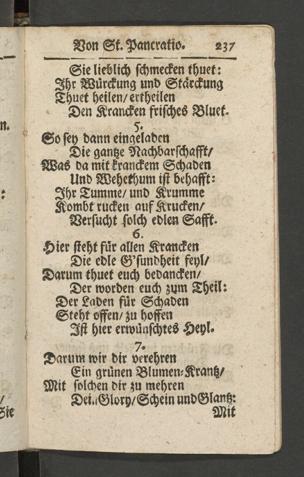 Von St. Pancratio. 237
Sie lieblich schmecken thuet:
Ihr Würckung und Stärckung
Thuet heilen/ ertheilen
Den Krancken frisches Bluet.
5.
So sey dann eingeladen
Die gantze Nachbarschafft/
Was da mit kranckem Schaden
Und Wehethum ist behafft:
Ihr Tumme/ und Krumme
Kombt rucken auf Krucken/
Versucht solch edlen Safft.
6.
Hier steht für allen Krancken
Die edle G'sundheit feyl/
Darum thuet euch bedancken/
Der worden euch zum Theil:
Der Laden für Schaden
Steht offen/ zu hoffen
Ist hier erwünschtes Heyl.
7.
Darum wir dir verehren
Ein grünen Blumen-Krantz/
Mit solchen dir zu mehren
Dein Glory/ Schein und Glantz:
Mit